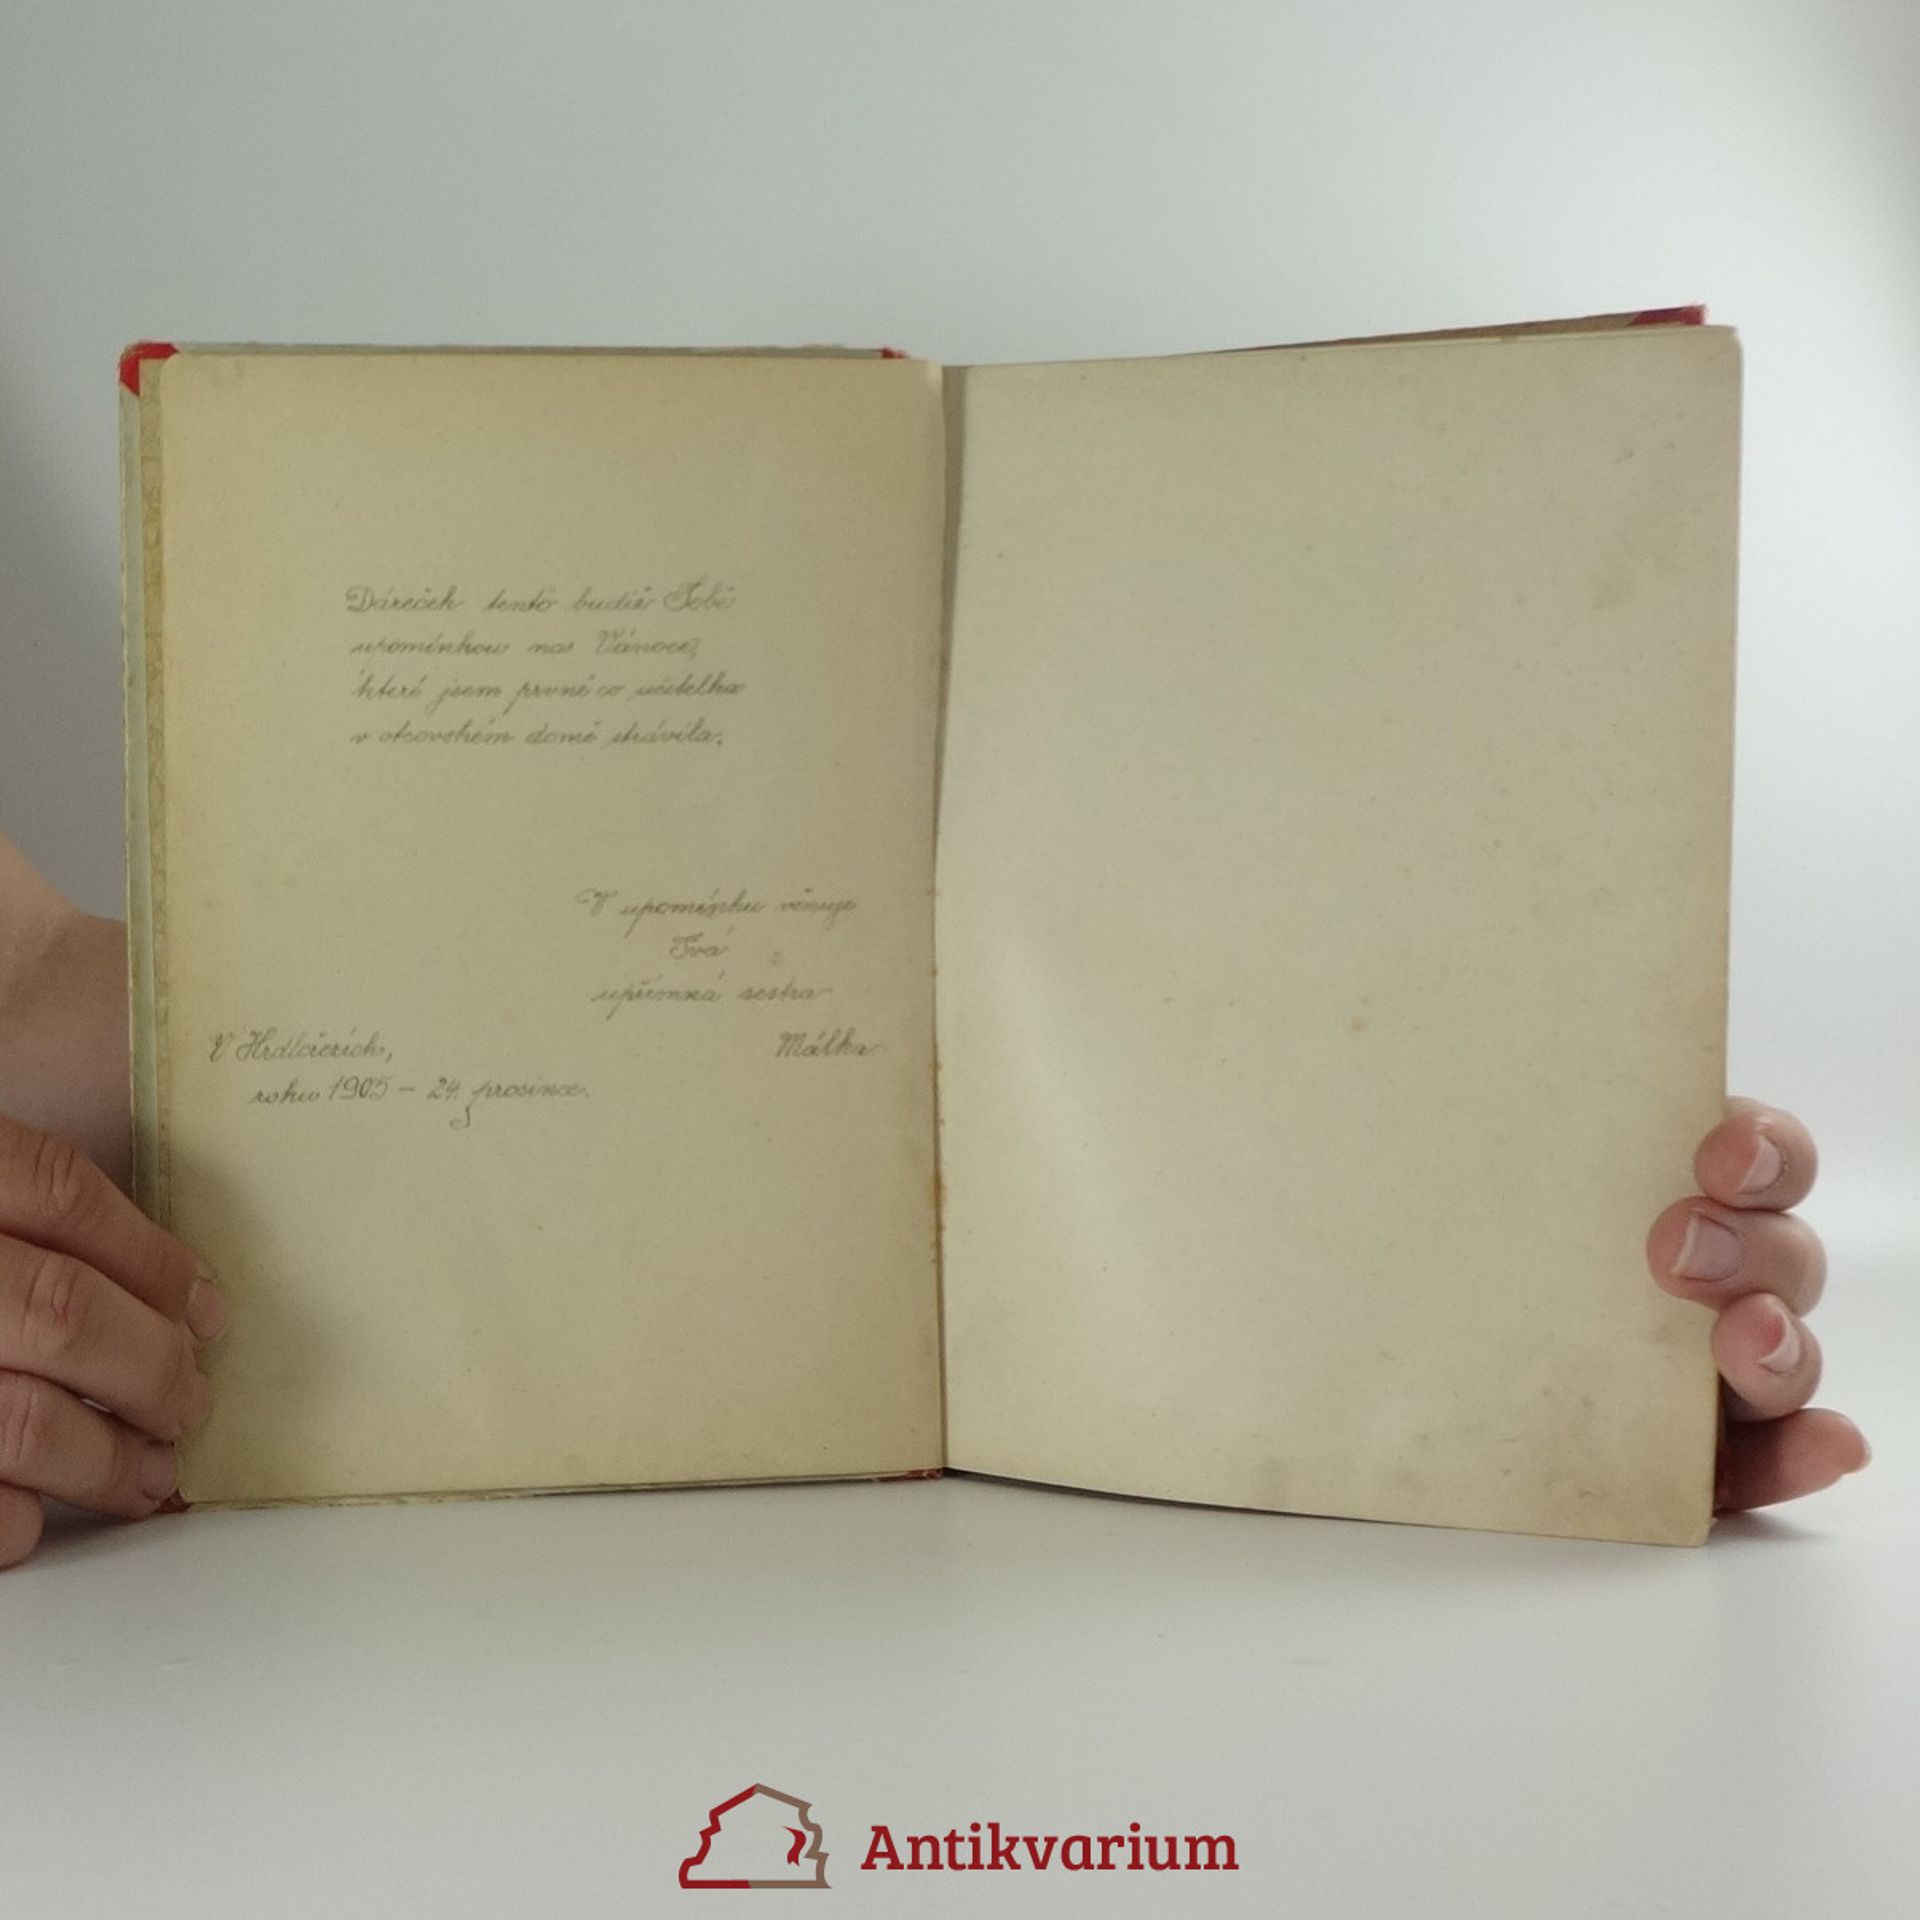 Dáreček tento budiž Tobě
upomínkou na Vánoce,
které jsem prvně co učitelka
v otcovském domě strávila.
V upomínku věnuje
Tvá
upřímná sestra
Málka
V Hrdlořezích,
roku 1905 – 24. prosince.
Antikvarium